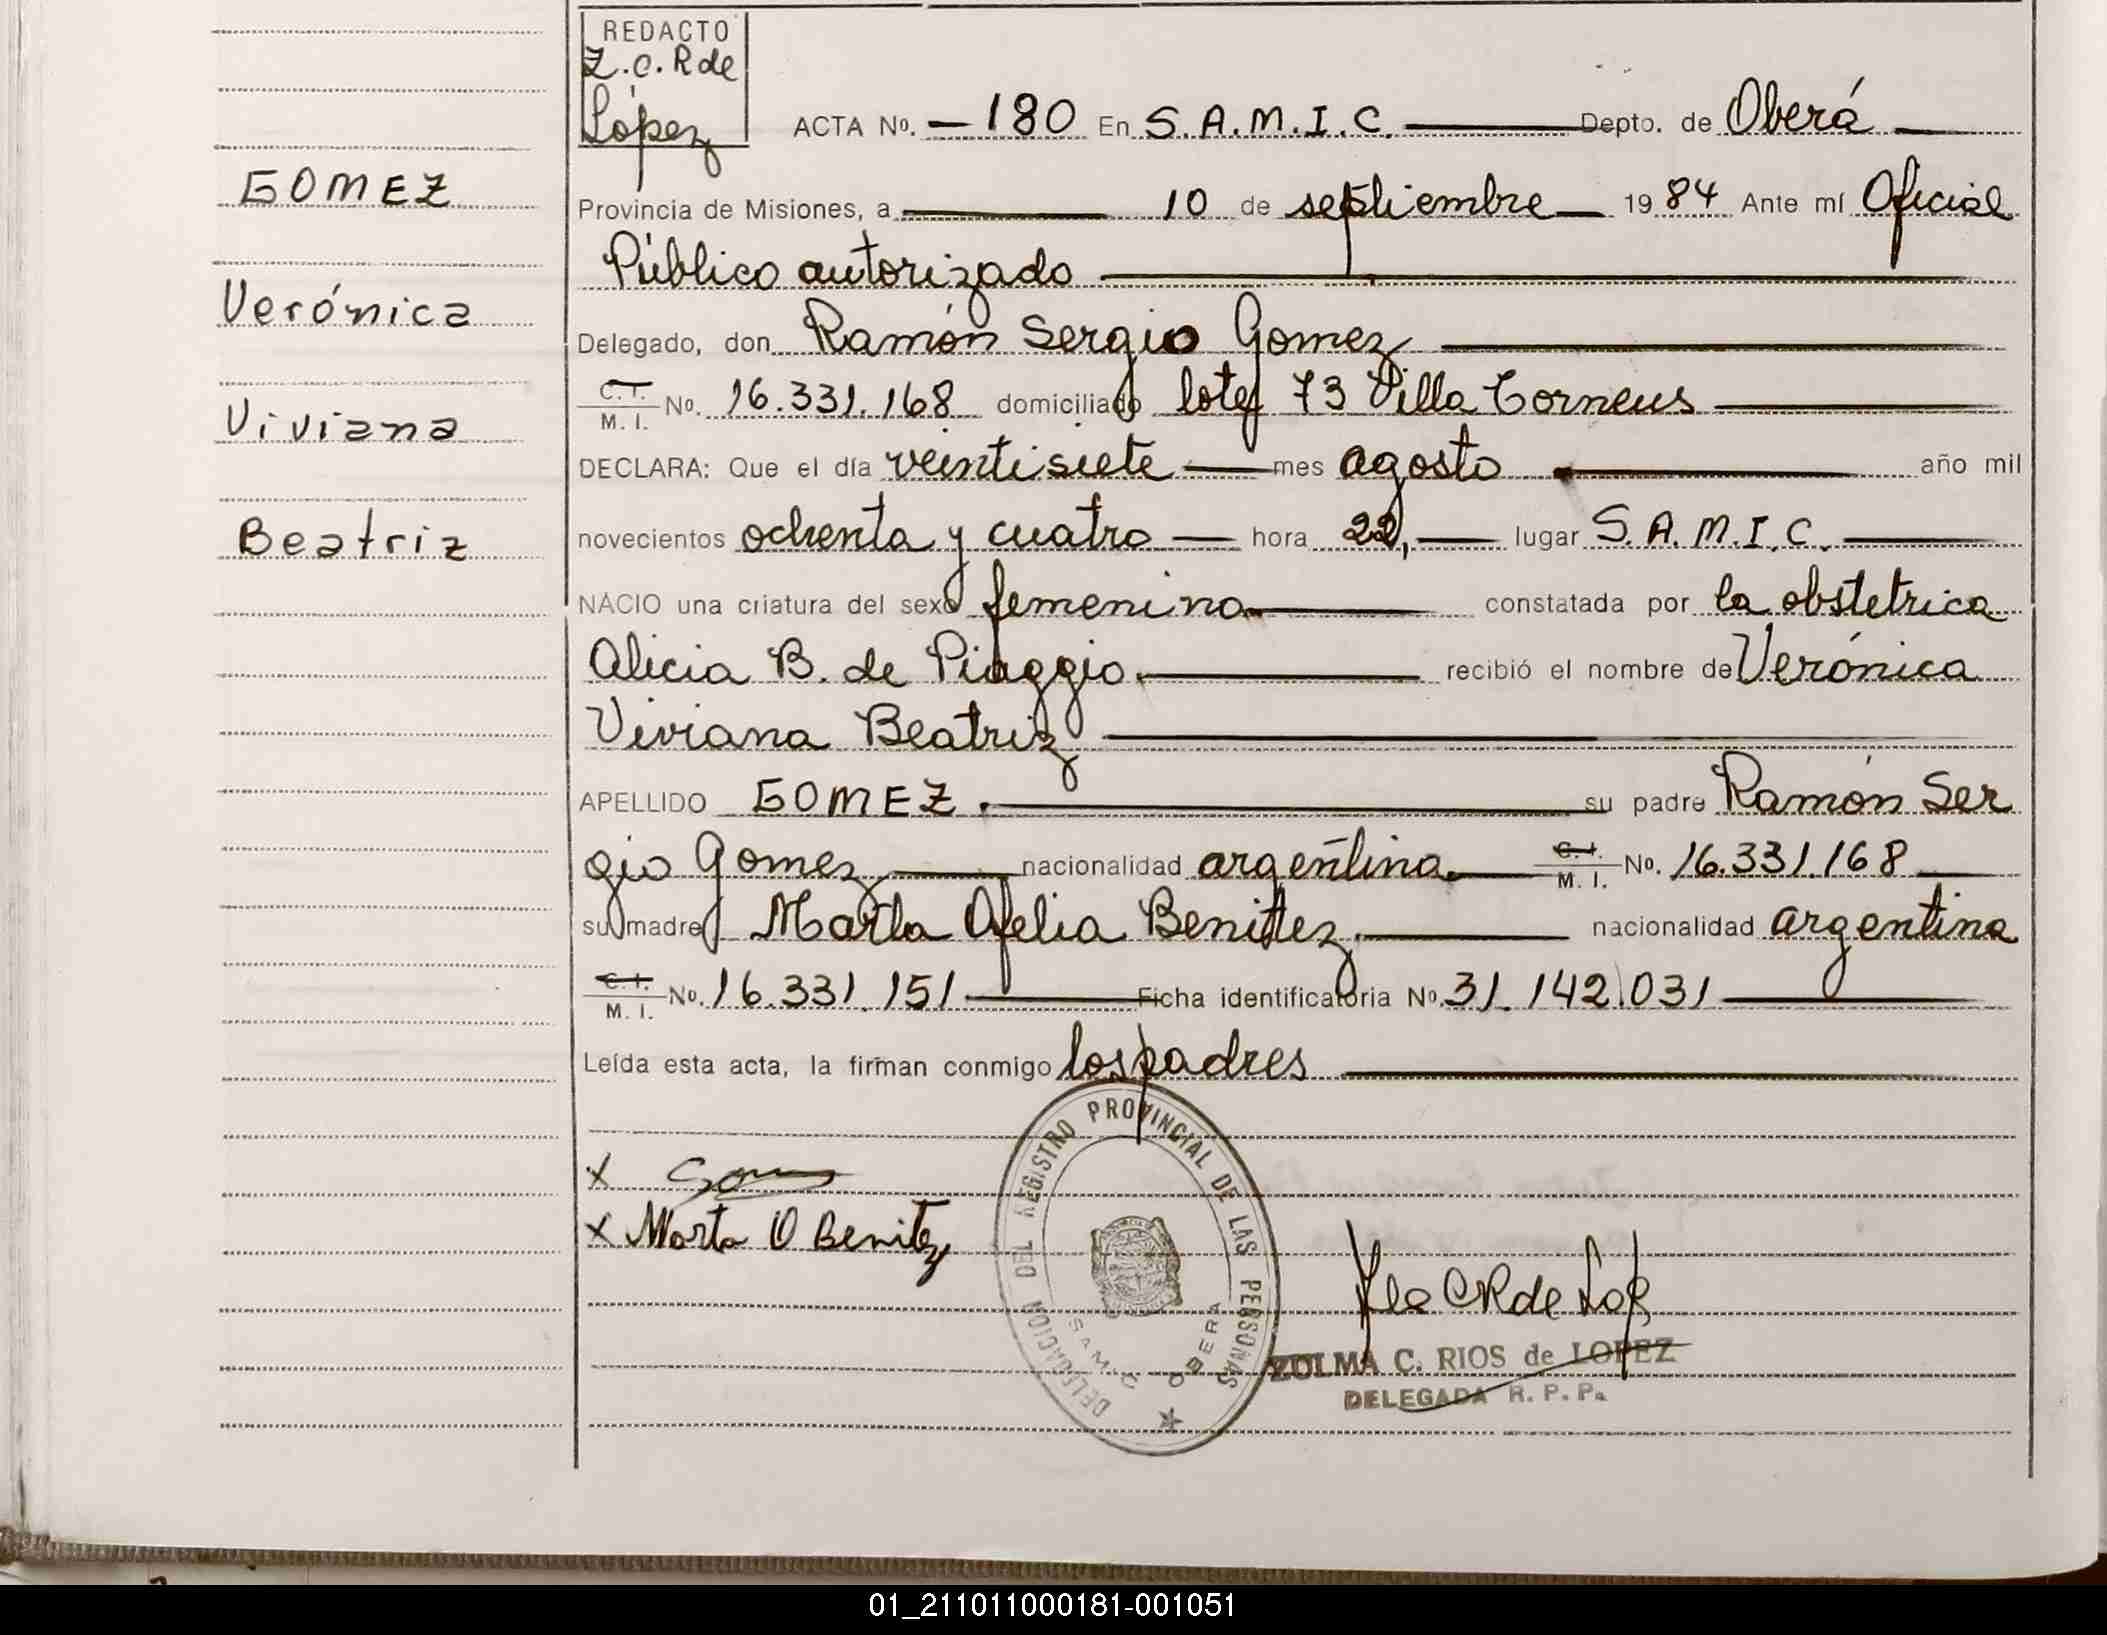 REDACTO
Z.C.R de
López
ACTA Nº. 180 En S.A.M.I.C. Depto. de Oberá
GOMEZ
Provincia de Misiones, a 10 de septiembre 1984 Ante mí Oficial
Público autorizado
Verónica
Delegado, don Ramón Sergio Gomez
C.I.
M. I. No. 16.331.168 domiciliado lote 73 Villa
Viviana
DECLARA: Que el día veintisiete mes agosto año mil
Beatriz
novecientos ochenta y cuatro hora 22, lugar S.A.M.I.C.
NACIO una criatura del sexo femenino constatada por la obstetrica
Alicia B. de Piaggio. recibió el nombre de Verónica
Viviana Beatriz
APELLIDO GOMEZ. su padre Ramón Ser
gio Gomez nacionalidad argentina C.I.
M. I. No. 16.331.168
su madre Marta Ofelia Benitez, nacionalidad argentina
C.I.
M. I. No. 16.331.151 Ficha identificatoria Nº. 31.142.031
Leída esta acta, la firman conmigo los padres
X
X Marta O Benitez
DELEGACION DEL REGISTRO PROVINCIAL DE LAS PERSONAS
S.A.M.I.C. OBERA
ZULMA C. RIOS de LOPEZ
DELEGADA R. P. P.
01_211011000181-001051